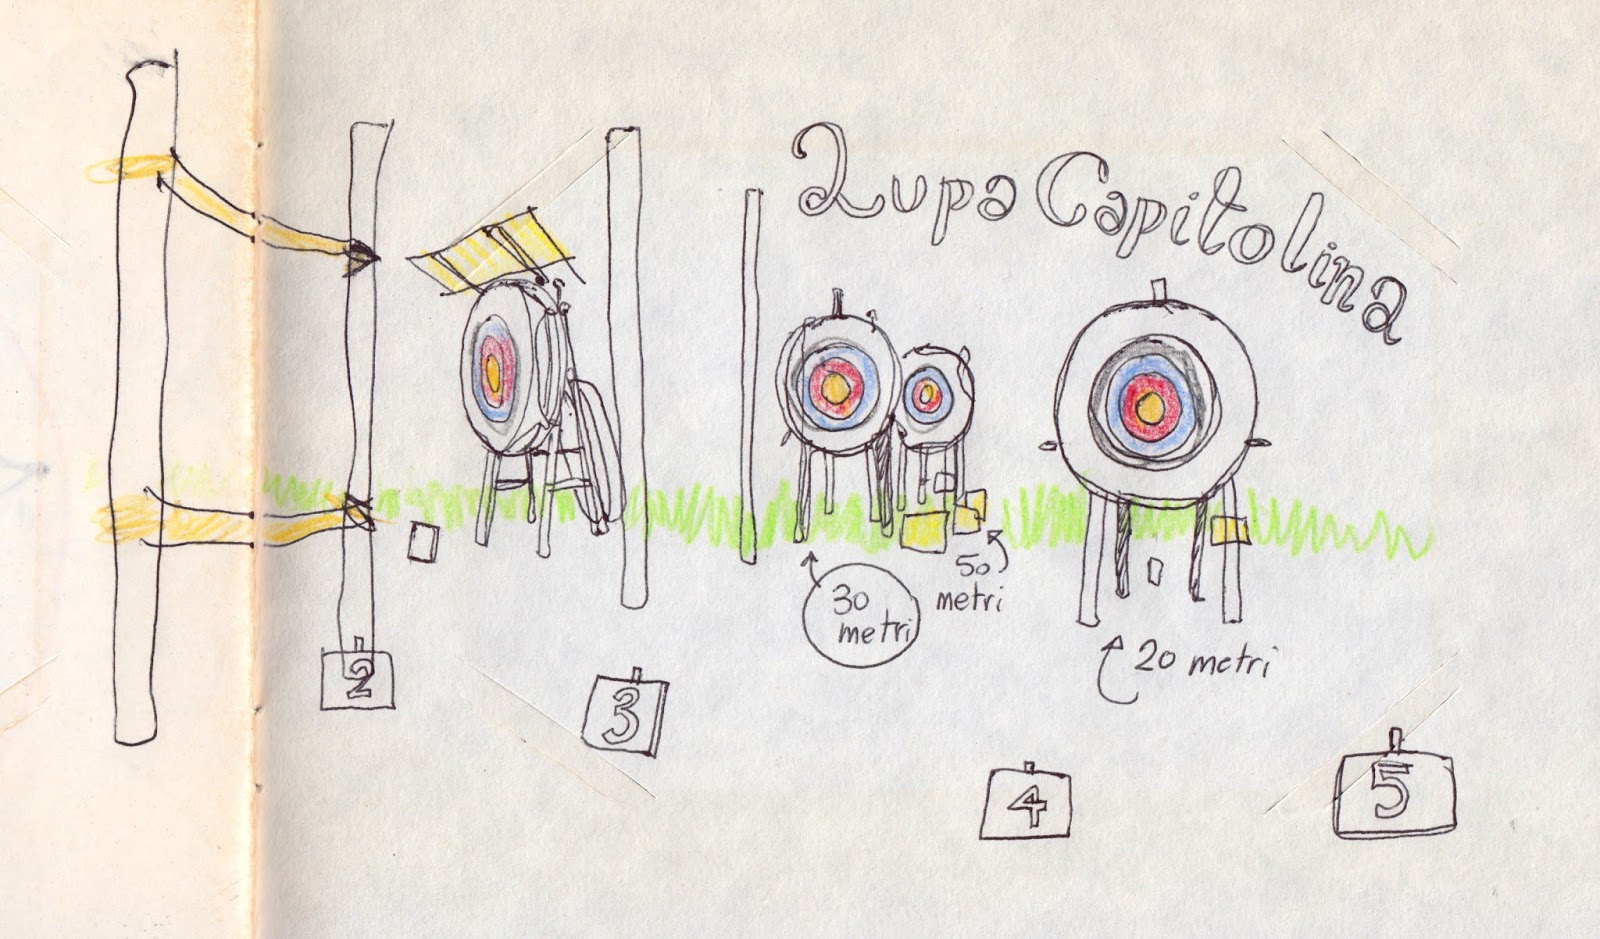 Lupa Capitolina
50
metri
30
metri
20 metri
2
3
4
5